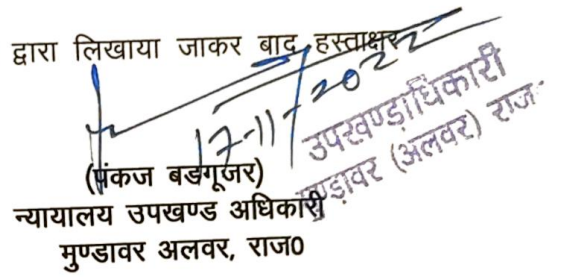 द्वारा लिखाया जाकर बाद हस्ताक्षर
17-11-2022
उपखण्डाधिकारी
मुण्डावर (अलवर) राज.
(पंकज बडगूजर)
न्यायालय उपखण्ड अधिकारी
मुण्डावर अलवर, राज0